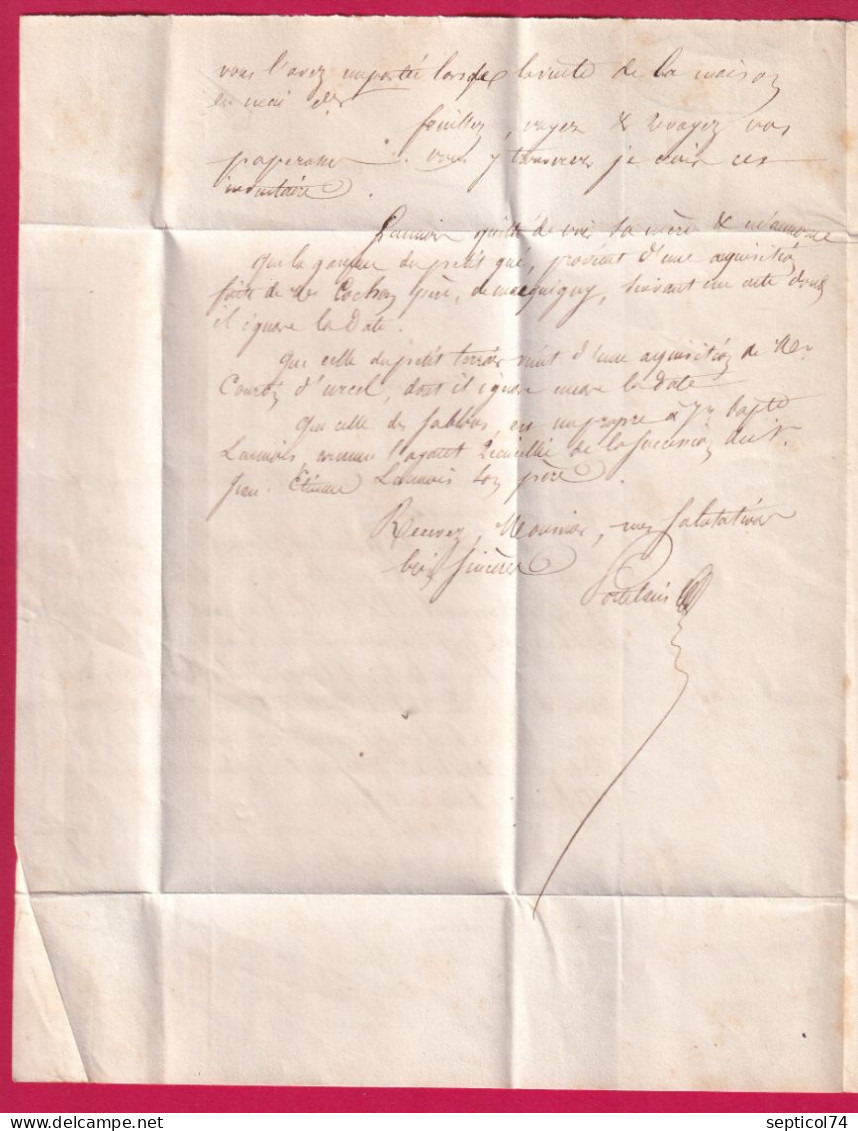 vous l'avez emportée lorsque la vente de la maison
en mai der
fouillez, voyez & revoyez vos
paperasses. vous y trouverez je crois ces
inventaire.
Launois quitte de voir sa mère & m'annonce
que la garenne du petit gué, provient d'une acquisition
faite de Mr Cochon père, de suivant un acte dont
il ignore la date.
Que celle du petit terroir vient d'une acquisition de Mr
d'urcel, dont il ignore encore la date
Que celle des Sablons, est un propre à Jn bapte
Launois, comme l'ayant recueillie de la succession dud.
Jean Etienne Launois son père.
Recevez, Monsieur, mes salutations
bien sincères

septicol74